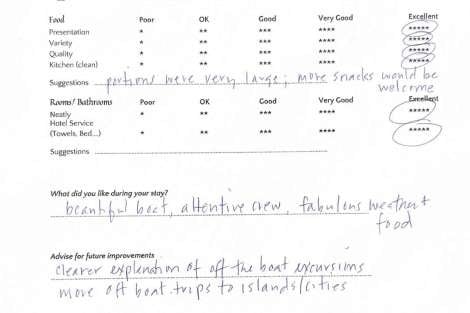 Food Poor OK Good Very Good Excellent
Presentation * ** *** **** *****
Variety * ** *** **** *****
Quality * ** *** **** *****
Kitchen (clean) * ** *** **** *****
Suggestions portions were very large; more snacks would be
welcome
Rooms/ Bathrooms Poor OK Good Very Good Excellent
Neatly * ** *** **** *****
Hotel Service
(Towels, Bed...) * ** *** **** *****
Suggestions
What did you like during your stay?
beautiful boat, attentive crew, fabulous weather +
food
Advise for future improvements
clearer explanation of off the boat excursions
more off boat trips to islands/cities